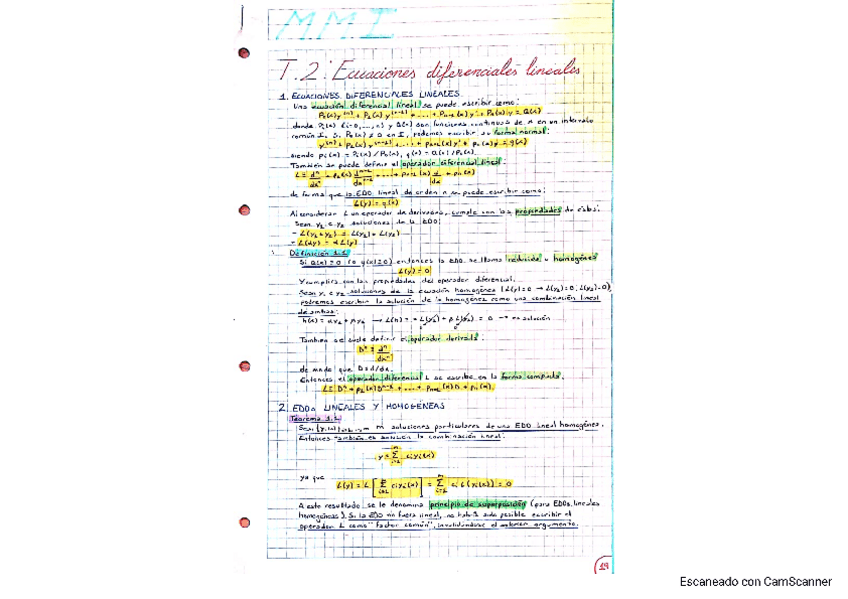 M M I
T.2: Ecuaciones diferenciales lineales
1. ECUACIONES DIFERENCIALES LINEALES
Una ecuación diferencial lineal se puede escribir como:
donde P_i(x) (i=0,...,n) y Q(x) son funciones continuas de x en un intervalo
común I. Si P₀(x) ≠ 0 en I, podemos escribir su forma normal:
siendo p_i(x) = P_i(x)/P₀(x), q(x) = Q(x)/P₀(x).
También se puede definir el operador diferencial lineal:
de forma que la EDO lineal de orden n se puede escribir como:
L(y) = q(x)
Al considerar L un operador de derivadas, cumple con las propiedades de estas:
Sean y₁ e y₂ soluciones de la EDO:
- L(y₁+y₂) = L(y₁)+L(y₂)
- L(αy) = αL(y)
Definición 1.1
Si Q(x)=0 (o q(x)=0) entonces la EDO se llama reducida u homogénea
L(y)=0
Y cumple con las propiedades del operador diferencial.
Sean y₁ e y₂ soluciones de la ecuación homogénea (L(y)=0 → L(y₁)=0, L(y₂)=0),
podremos escribir la solución de la homogénea como una combinación lineal
de ambas:
También se puede definir el operador derivada:
Dⁿ ≡ dⁿ/dxⁿ
de modo que D=d/dx.
Entonces el operador diferencial L se escribe en la forma compacta:
2. EDOs LINEALES Y HOMOGÉNEAS
Teorema
m soluciones particulares de una EDO lineal homogénea.
Entonces también es solución la combinación lineal:
y = Σ c_i y_i(x)
ya que
L(y) = L [Σ c_i y_i(x)] = Σ c_i L(y_i(x)) = 0
A este resultado se le denomina principio de superposición (para EDOs lineales
homogéneas). Si la EDO no fuera lineal, no habría sido posible escribir el
operador L como "factor común", invalidándose el anterior argumento.
19
Escaneado con CamScanner